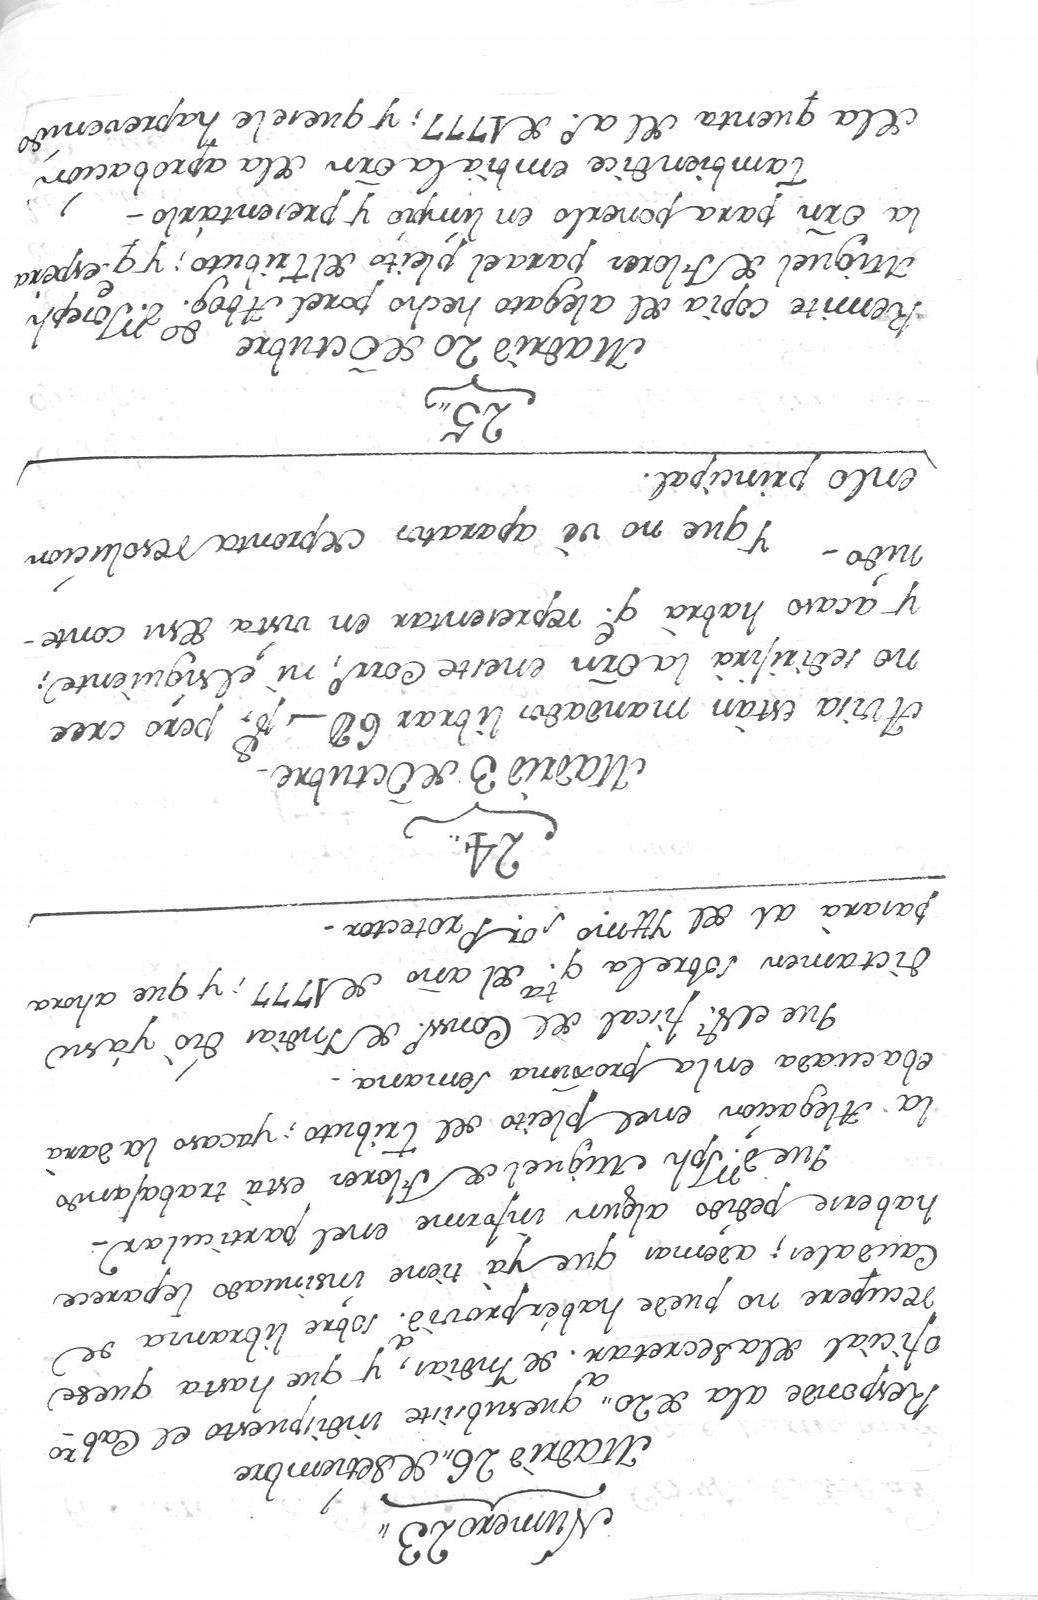 Número 23,,
Madrid 26,, de Setiembre
Responde a la de 20,, que subsiste indispuesto el Cab.ro
oficial de la Secretar.a de Indias, y que hasta que se
recupere no puede haber provid.a sobre libranza de
Caudales; ademas que ya tiene insinuado le parece
haberse pedido algun informe en el particular.-
Que d.n Jph Miguel de Flores está trabajando
la Alegacion en el pleito del Tributo; y acaso la dará
ebacuada en la proxima semana.-
Que el S.r fiscal del Cons.o de Indias dió yá su
dictamen sobre la q.ta del año de 1777; y que ahora
pasará al del Yllmo. s.or Protector.-
24,,
Madrid 3 de Octubre.-
Avisa están mandados librar 6D p.s, pero cree
no se dirijirá la orñ en este Corr.o, ni el siguiente;
y acaso habrá q.e representar en vista de su conte-
nido-
Y que no vé aparatos de pronta resolucion
en lo principal.
25,,
Madrid 20 de Octubre
Remite copia del alegato hecho por el Abog.do d.n Joseph
Miguel de Flores para el pleito del Tributo; y q.e espera
la orñ para ponerlo en limpio y presentarlo-
Tambien dice embia la orñ de la aprobacion
de la quenta del a.o de 1777; y que se le ha prevenido